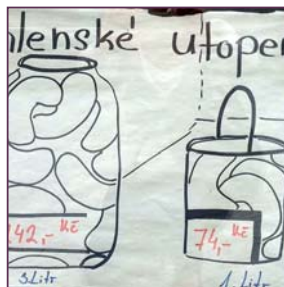 lenské utope
142,- KČ
74,- KČ
3 Litr
1 Litr